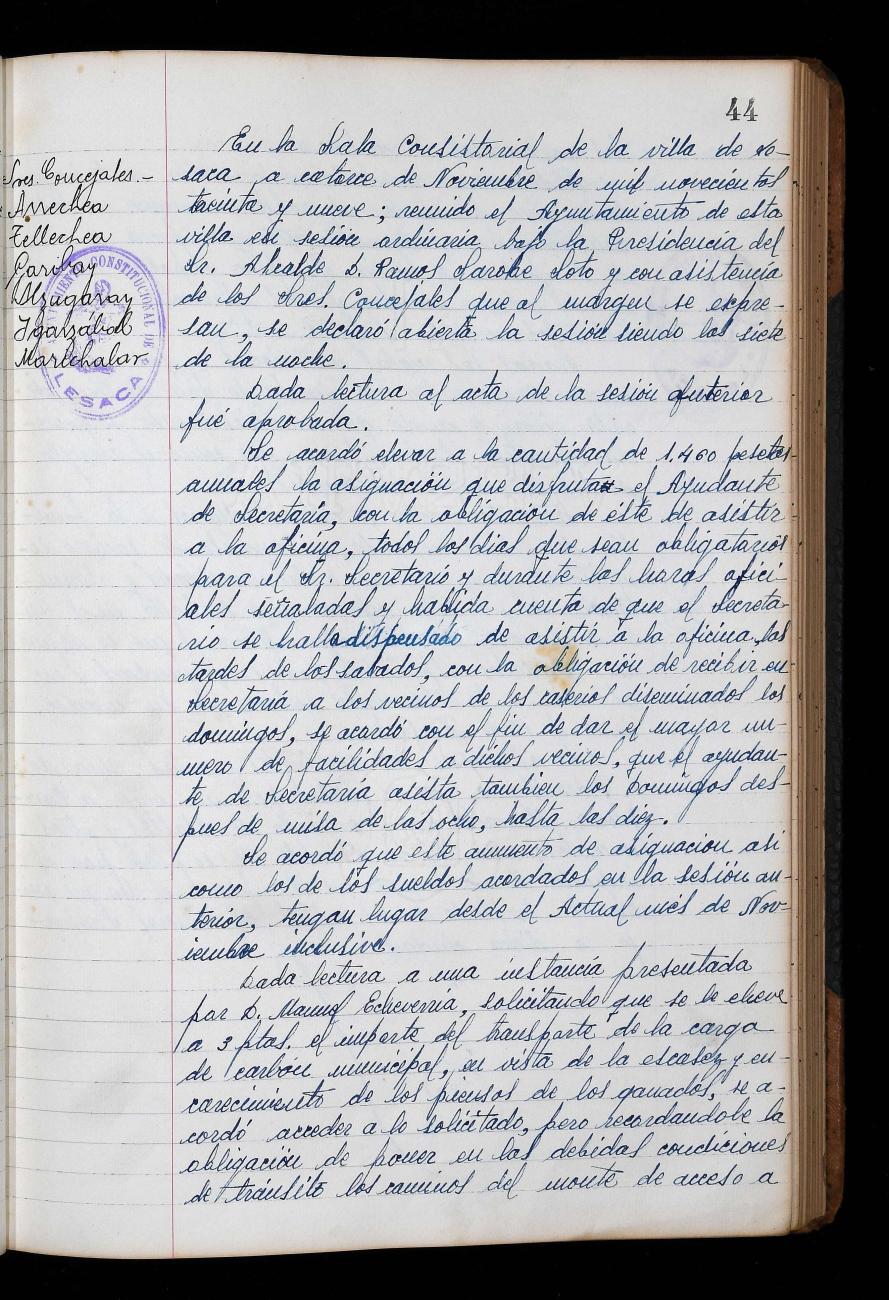 44
En la Sala Consistorial de la villa de Le-
saca a catorce de Noviembre de mil novecientos
treinta y nueve; reunido el Ayuntamiento de esta
villa en sesión ordinaria bajo la Presidencia del
Sr. Alcalde D. Ramos Larobe Soto y con asistencia
de los Sres. Concejales que al margen se expre-
san, se declaró abierta la sesión siendo las siete
de la noche.
Sres. Concejales.-
Arrechea
Tellechea
Garibay
Alzugaray
Igarzábal
Marichalar
AYUNTAMIENTO CONSTITUCIONAL DE
LESACA
Dada lectura al acta de la sesión anterior
fué aprobada.
Se acordó elevar a la cantidad de 1.460 pesetas
anuales la asignación que disfruta el Ayudante
de Secretaría, con la obligación de éste de asistir
a la oficina, todos los dias que sean obligatorios
para el Sr. Secretario y durante las horas ofici-
ales señaladas y habida cuenta de que el Secreta-
rio se halla dispensado de asistir a la oficina las
tardes de los sabados, con la obligación de recibir en
Secretaría a los vecinos de los caserios diseminados los
domingos, se acordó con el fin de dar el mayor nu-
mero de facilidades a dichos vecinos, que el ayudan-
te de Secretaría asista tambien los Domingos des-
pues de misa de las ocho, hasta las diez.
Se acordó que este aumento de asignacion asi
como los de los sueldos acordados en la sesión an-
terior, tengan lugar desde el Actual mes de Nov-
iembre inclusive.
Dada lectura a una instancia presentada
por D. Manuel Echeverria, solicitando que se le eleve
a 3 ptas. el importe del transporte de la carga
de carbón municipal, en vista de la escasez y en-
carecimiento de los piensos de los ganados, se a-
cordó acceder a lo solicitado, pero recordandole la
obligación de poner en las debidas condiciones
de tránsito los caminos del monte de acceso a